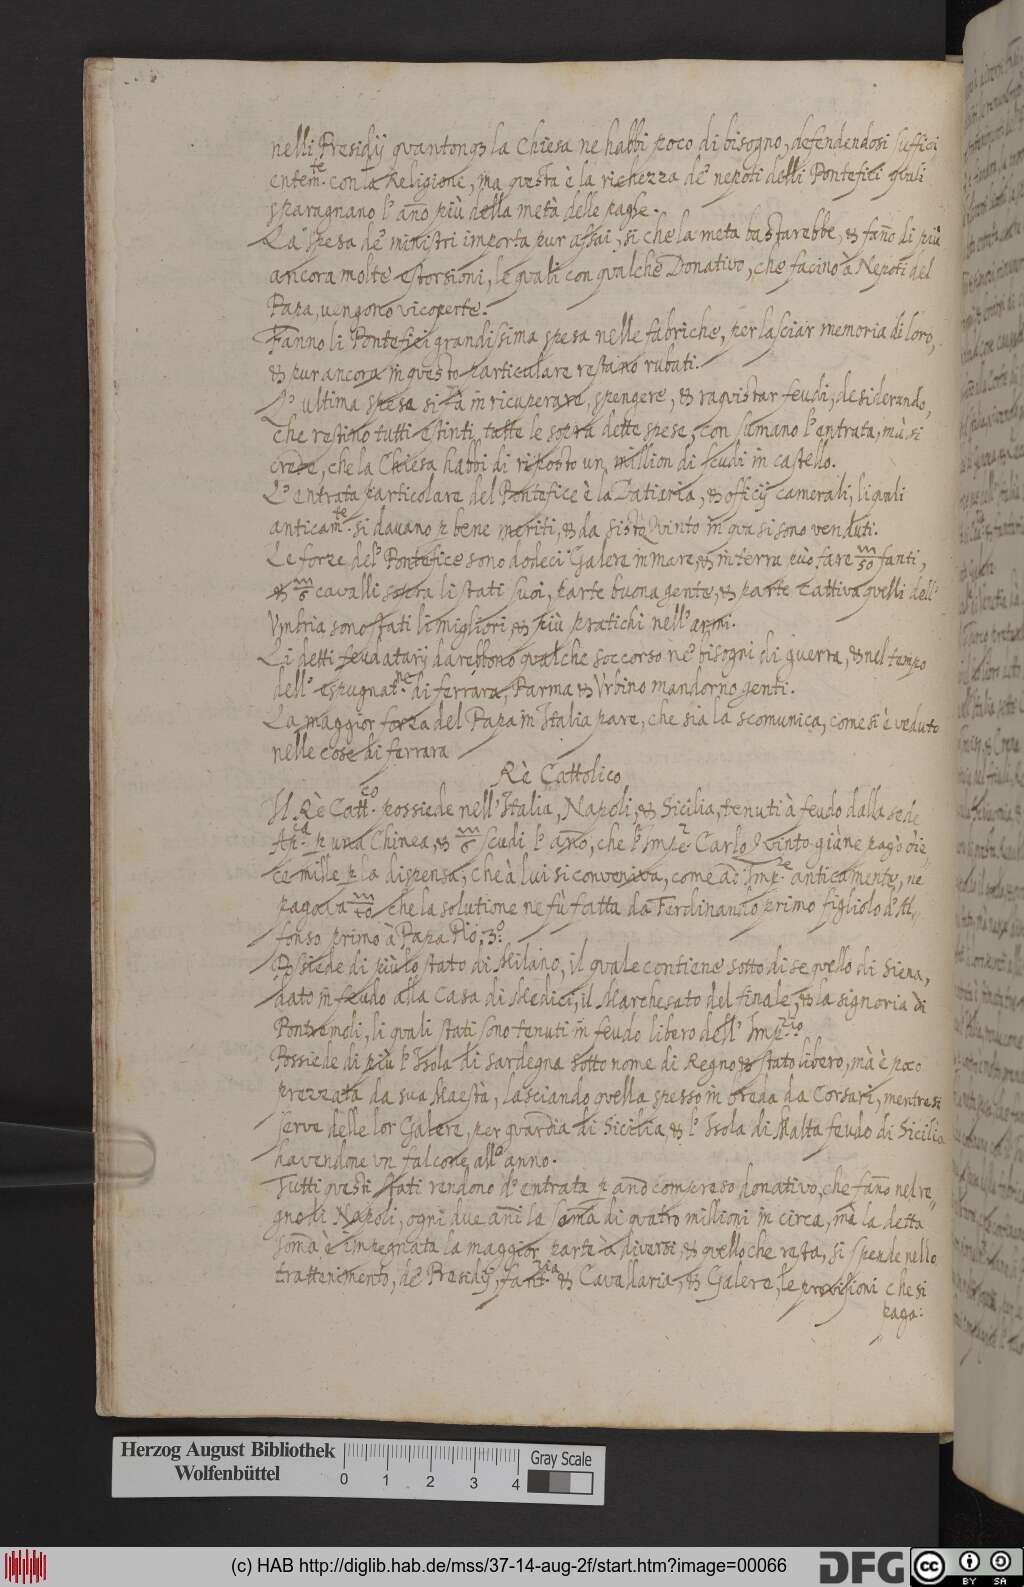 nelli Presidij quantonq3 la Chiesa ne habbi poco di bisogno, defendendosi suffici
entem.te con la Religione, ma questa è la richezza de' nepoti delli Pontefici quali
sparagnano l'año più della metà delle paghe.
La spesa de' ministri importa pur assai, si che la meta bastarebbe, & fañο di più
ancora molte estorsioni, le quali con qualche Donativo, che facino à Nepoti del
Papa, vengono ricoperte.
Fanno li Pontefici grandissima spesa nelle fabriche, per lasciar memoria di loro,
& pur ancora in questo particulare restano rubati.
L'ultima spesa si fà in ricuperare, spengere, & raquistar feudi, desiderando,
che restino tutti estinti, tutte le sopra dette spese, con sumano l'entrata, mà si
crede, che la Chiesa habbi di riposto un million di scudi in castello.
L'entrata particolare del Pontefice è la Datiaria, & officij camerali, li quali
anticam.te si davano p bene meriti, & da sisto Quinto in qua si sono venduti.
Le forze del Pontefice sono dodeci Galere in mare, & in terra può fare m/50 fanti,
& m/6 cavalli sopra li stati suoi, parte buona gente, & parte cattiva quelli dell'
Vmbria sono stati li migliori, & più pratichi nell'armi.
Li detti feudatarij darebbono qualche soccorso ne' bisogni di guerra, & nel tempo
dell' espugnat.ne di ferrara, Parma & Vrbino mandorno genti.
La maggior forza del Papa in Italia pare, che sia la scomunica, come si è veduto
nelle cose di ferrara
Rè Cattolico
Il Rè Catt.co possiede nell'Italia, Napoli, & Sicilia, tenuti à feudo dalla sede
Ap.ca p una Chinea, & m/6 scudi l'año, che l'Imp.e Carlo Quinto già ne pagò
ce mille p la dispensa, che à lui si conveniva, come ad Imp.e anticamente, ne
pagava m/40 che la solutione ne fù fatta da Ferdinando primo figliolo d'Al,,
fonso primo à Papa Pio. 3.o
Possiede di più lo stato di Milano, il quale contiene sotto di se quello di Siena,
dato in feudo alla Casa di Medici, il Marchesato del finale, & la signoria di
Pontremoli, li quali stati sono tenuti in feudo libero dell' Imp.rio
Possiede di più l'Isola di Sardegna sotto nome di Regno & stato libero, mà è poco
prezzata da sua Maestà, lasciando quella spesso in preda da Corsari, mentre si
serve delle lor Galere, per guardia di Sicilia, & l'Isola di Malta feudo di Sicilia
havendone un falcone all'anno.
Tutti questi stati rendono d'entrata p ano comcreso donativo, che fañο nel re,,
gno di Napoli, ogni due añi la soma di quatro millioni in circa, mà la detta
soma è impegnata la maggior parte à diversi, & quello che resta, si spende nello
trattenimento, de' Presidij, fant.ria & Cavallaria, & Galere, le provisioni che si
paga:
Herzog August Bibliothek
Wolfenbüttel
0 1 2 3 4
Gray Scale
(c) HAB http://diglib.hab.de/mss/37-14-aug-2f/start.htm?image=00066
DFG
cc BY SA